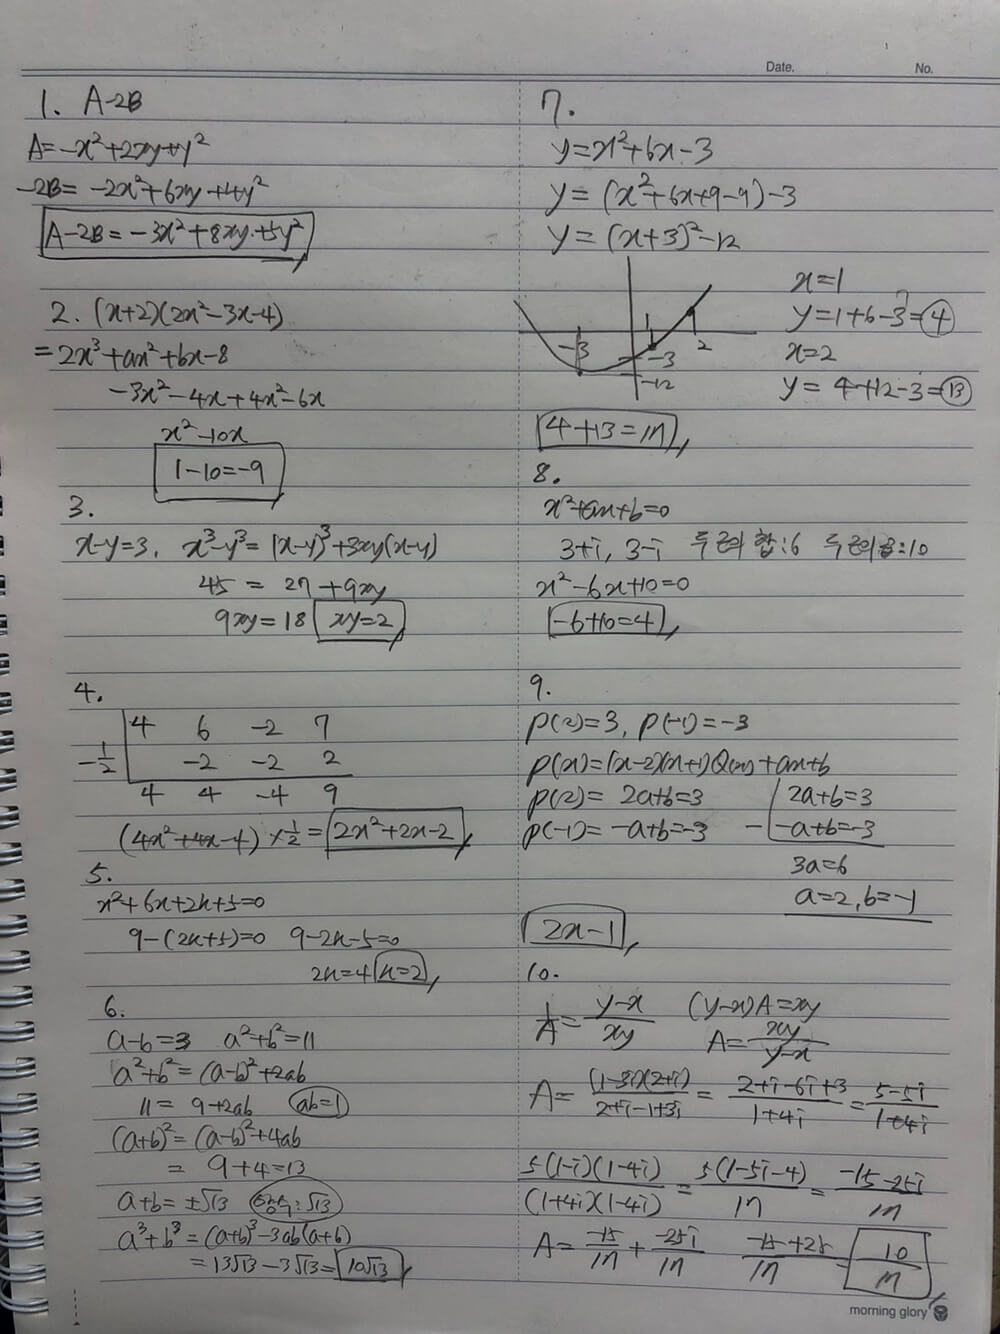 Date. No.
1. A-2B
A=-x²+2xy+y²
-2B= -2x²+6xy+4y²
A-2B=-3x²+8xy+5y²
2. (x+2)(2x²-3x-4)
=2x³+ax²+bx-8
-3x²-4x+4x²-6x
x²-10x
1-10=-9
3.
x-y=3, x³-y³=(x-y)³+3xy(x-y)
45 = 27+9xy
9xy=18 xy=2
4.
4 6 -2 7
-1/2 -2 -2 2
4 4 -4 9
(4x²+4x-4)×1/2=2x²+2x-2
5.
x²+6x+2k+5=0
9-(2k+5)=0 9-2k-5=0
2k=4 k=2
6.
a-b=3 a²+b²=11
a²+b²=(a-b)²+2ab
11= 9+2ab ab=1
(a+b)²=(a-b)²+4ab
= 9+4=13
a+b=±√13 양수:√13
a³+b³=(a+b)³-3ab(a+b)
=13√13-3√13=10√13
7.
y=x²+6x-3
y=(x²+6x+9-9)-3
y=(x+3)²-12
x=1
y=1+6-3=4
-3 1 -3 2
x=2
-12
y= 4+12-3=13
4+13=17
8.
x²+ax+b=0
3+i, 3-i 두 근의 합:6 두 근의 곱:10
x²-6x+10=0
-6+10=4
9.
P(2)=3, P(-1)=-3
P(x)=(x-2)(x+1)Q(x)+ax+b
P(2)= 2a+b=3 2a+b=3
P(-1)= -a+b=-3 - -a+b=-3
3a=6
a=2, b=-1
2x-1
10.
1/A=(y-x)/xy (y-x)A=xy
A=xy/(y-x)
A=(1-3i)(2+i)/(2+i-1+3i)=(2+i-6i+3)/(1+4i)=(5-5i)/(1+4i)
5(1-i)(1-4i)/(1+4i)(1-4i)=5(1-5i-4)/17=(-15-25i)/17
A=-15/17+-25i/17 (-15+25)/17=10/17
morning glory